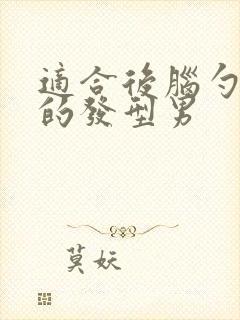 適合後腦勺
的發型男
莫妖